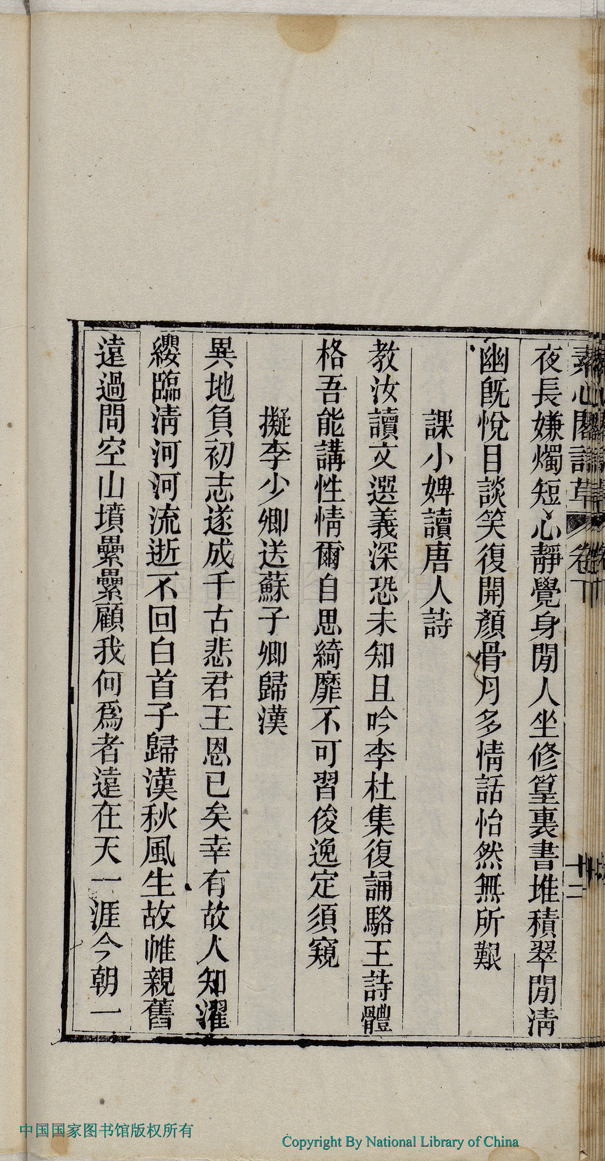 素心閣詩草 卷下 十二
夜長嫌燭短心靜覺身閒人坐修篁裏書堆積翠閒淸
幽旣悅目談笑復開顏骨月多情話怡然無所艱
課小婢讀唐人詩
教汝讀文選義深恐未知且吟李杜集復誦駱王詩體
格吾能講性情爾自思綺靡不可習俊逸定須窺
擬李少卿送蘇子卿歸漢
異地負初志遂成千古悲君王恩已矣幸有故人知濯
纓臨淸河河流逝不回白首子歸漢秋風生故帷親舊
遠過問空山墳纍纍顧我何爲者遠在天一涯今朝一
中国国家图书馆版权所有
Copyright By National Library of China